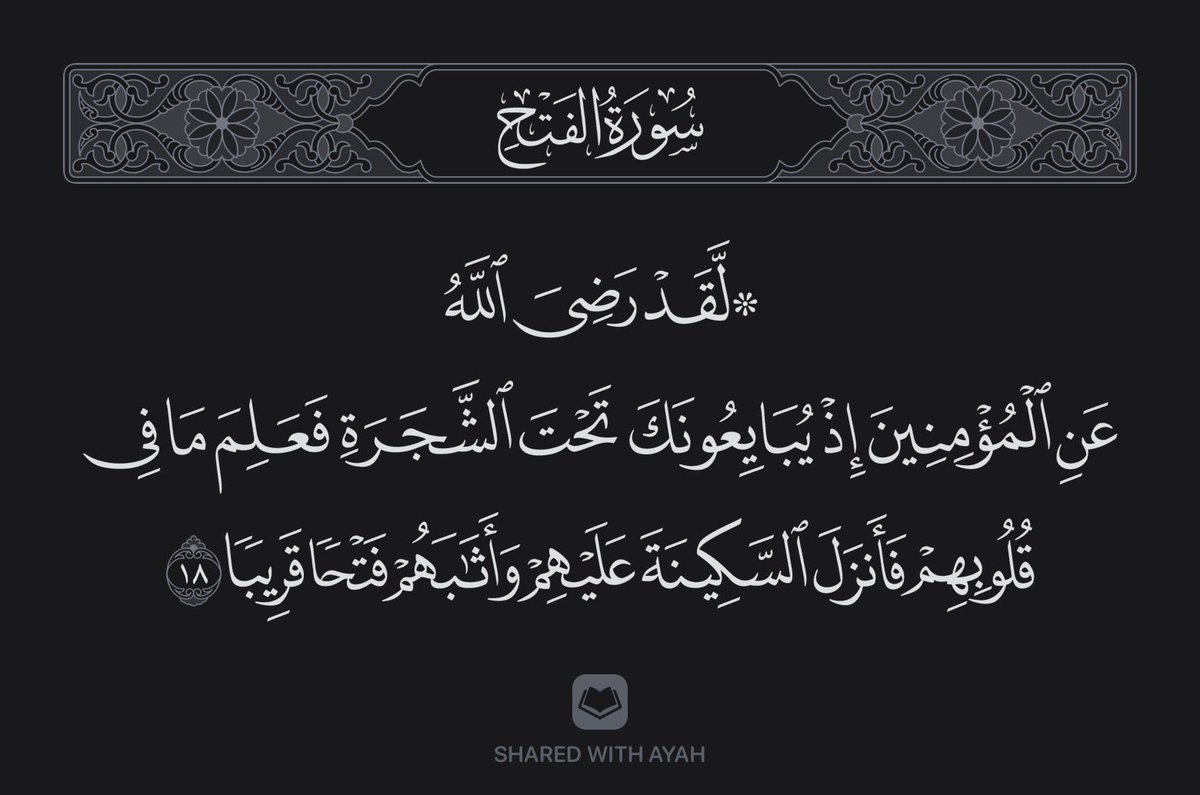 سُورَةُ الفَتْحِ
۞لَّقَدْ رَضِىَ ٱللَّهُ
عَنِ ٱلْمُؤْمِنِينَ إِذْ يُبَايِعُونَكَ تَحْتَ ٱلشَّجَرَةِ فَعَلِمَ مَا فِى
قُلُوبِهِمْ فَأَنزَلَ ٱلسَّكِينَةَ عَلَيْهِمْ وَأَثَٰبَهُمْ فَتْحًا قَرِيبًا ١٨
SHARED WITH AYAH